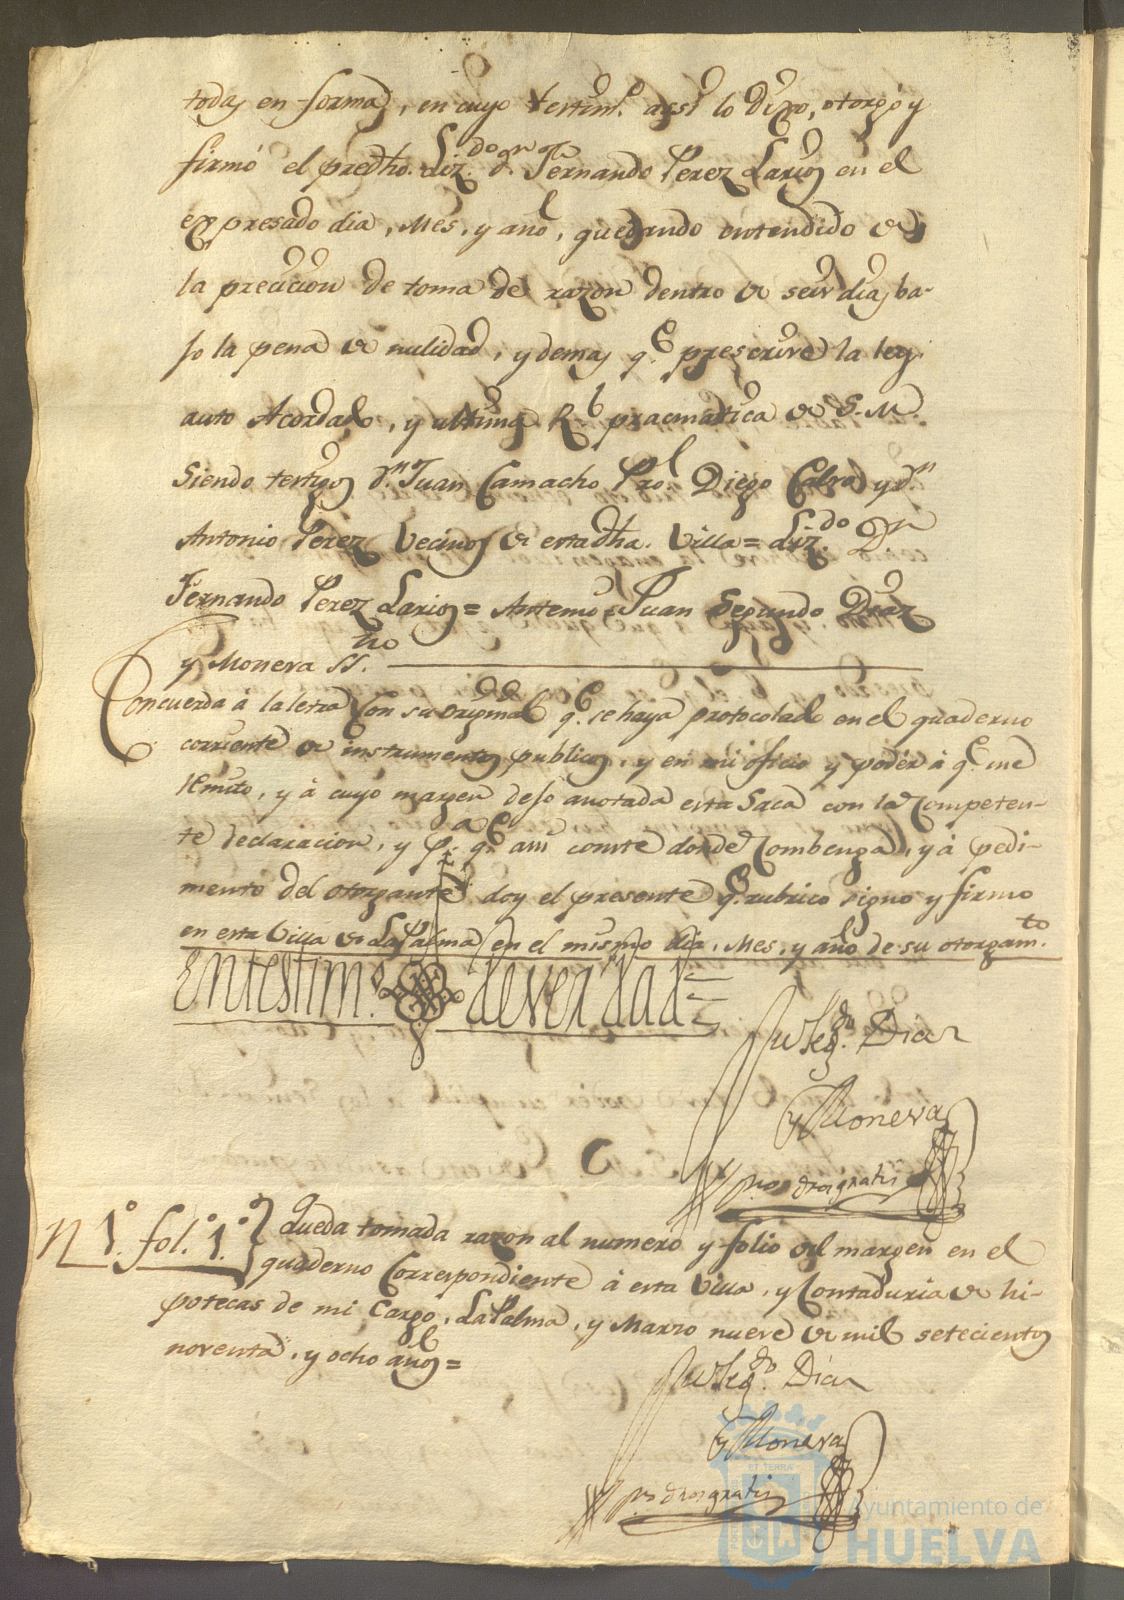 todas en forma, en cuyo testim.º assi lo dixo, otorgó y
firmó el predho. Liz.do d.n Fernando Perez Larios en el
expresado dia, Mes, y año, quedando entendido de
la precicion de toma de razon dentro de seis dias, ba-
jo la pena de nulidad, y demas q.e prescrive la ley
auto Acordado, y ultima R.l pracmatica de S. M.
Siendo testigos d.n Juan Camacho Pro. Diego Calvo y d.n
Antonio Perez Vecinos de esta dha. Villa = Liz.do D.n
Fernando Perez Larios = Antemi = Juan Segundo Diaz
y Moneva SS.no
Concuerda á la letra con su original q.e se haya protocolado en el quaderno
corriente de instrumentos publicos, y en mi oficio y podér á q.e me
remito, y á cuyo margen dejo anotada esta Saca con la Competen-
te declaracion, y p.a q.e assi conste donde Combenga, y á pedi-
mento del otorgante doy el presente q.e rubrico signo y firmo
en esta Villa de La Palma en el mismo dia, Mes, y año de su otorgam.to
En testim.º de verdad
Ju Seg.do Diaz
y Moneva
n 1.º fol.º 1.º Queda tomada razon al numero y folio del margen en el
quaderno Correspondiente á esta Villa, y Contaduria de hi-
potecas de mi Cargo, La Palma, y Marzo nueve de mil setecientos
noventa, y ocho años =
Ju Seg.do Diaz
y Moneva
Ayuntamiento de
HUELVA